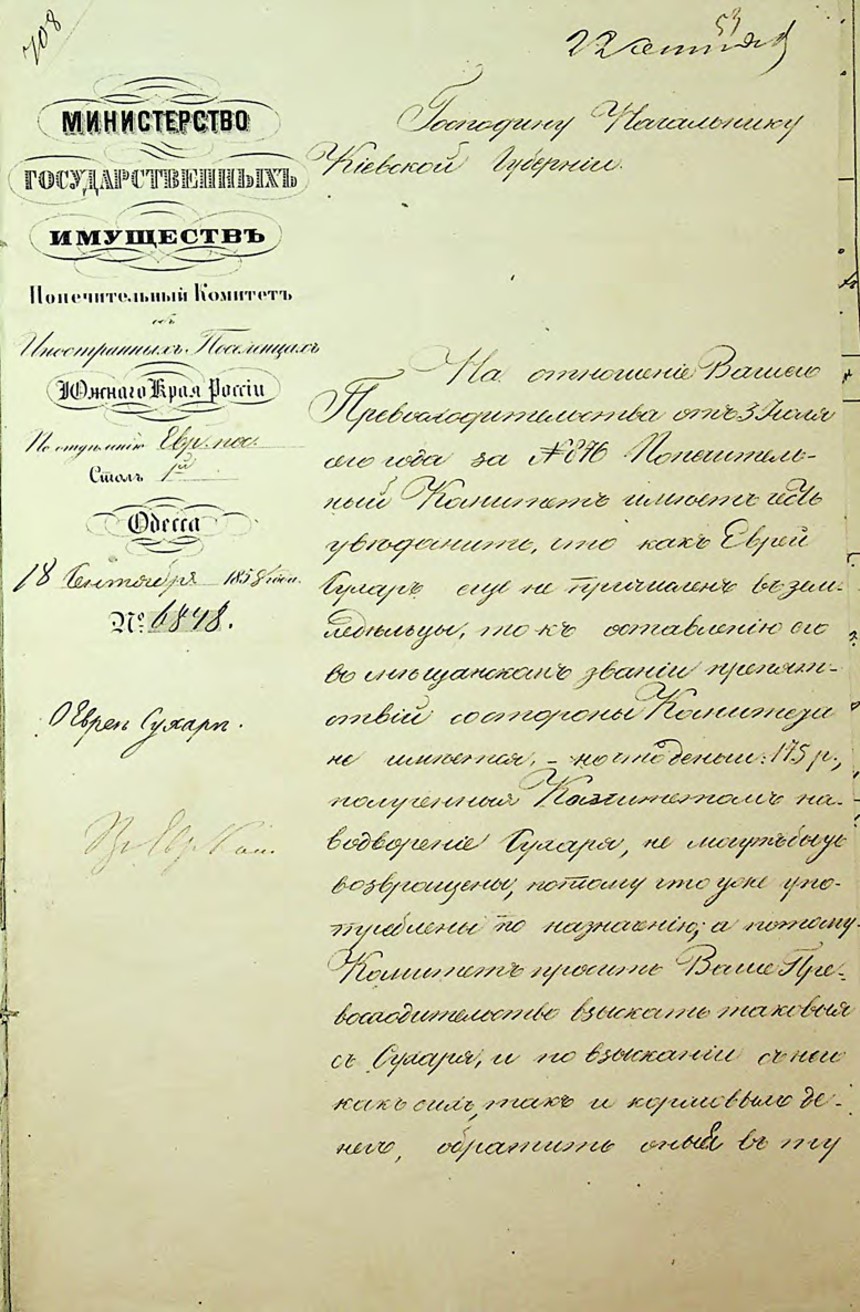 708
53
22 сентяб
МИНИСТЕРСТВО
ГОСУДАРСТВЕННЫХЪ
ИМУЩЕСТВЪ
Попечительный Комитетъ
объ
Иностранныхъ Поселенцахъ
Южнаго Края Россіи
По отдѣленію Евр. пос.
Столъ 1й
Одесса
18 Сентября 1858 года.
№ 6848.
О Евреѣ Сухарѣ.
Господину Начальнику
Кіевской Губерніи.
На отношеніе Вашего
Превосходительства отъ 3 Іюля
сего года за № 876 Попечитель-
ный Комитетъ имѣетъ честь
увѣдомить, что какъ Еврей
Сухарь еще не причисленъ въ зем-
ледѣльцы, то къ оставленію его
въ мѣщанскомъ званіи препят-
ствій со стороны Комитета
не имѣется, – но что деньги: 175 р.,
полученныя Комитетомъ на
водвореніе Сухаря, не могутъ быть
возвращены, потому что уже упо-
треблены по назначенію; а потому
Комитетъ проситъ Ваше Пре-
восходительство взыскать таковыя
съ Сухаря, и по взысканіи съ него
какъ сихъ, такъ и кормовыхъ де-
негъ, обратить оныя въ ту